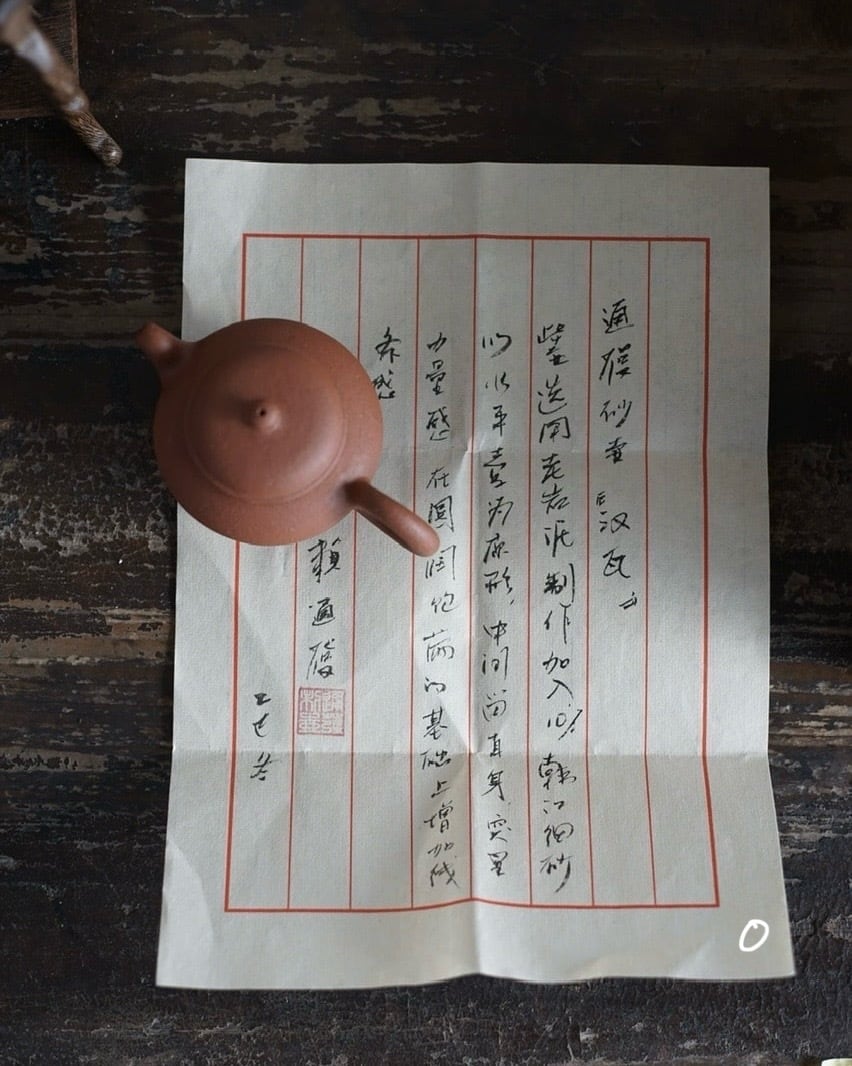 通 砂壶「汉瓦」
此壶选用老岩泥制作加入10%韩江细砂
以水平壶为原形，中间留直身，突显
力量感 在圆润饱满的基础上增加线
条感
賴通
乙巳冬